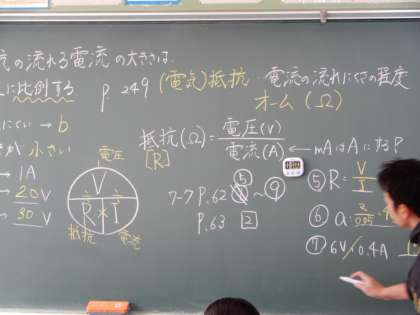 抗の流れる電流の大きさは
に比例する
p 249
(電気)抵抗 電流の流れにくさの程度
オーム (Ω)
にくい → b
が 小さい
抵抗(Ω) = 電圧(V) / 電流(A) ← mAはAになおす
[R]
→ 1A
→ 20V
→ 30V
電圧
V
R × I
抵抗 電流
ワーク P.62 ⑤ ~ ⑨
P.63 2
⑤ R = V / I
⑥ a.
⑦ 6V / 0.4A